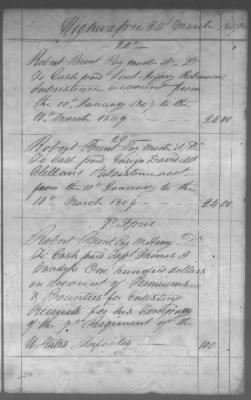 Highwassee 20th March 1809
20th
Robert Brent Pay Master Dr
To Cash paid Lieut Robinson
Subsistence account from
the 10th January 1809 to the
10th March 1809 24.00
20th
Robert Brent Pay Master Dr
To Cash paid Ensign David Mc
Clellans Subsistence acct
from the 10th January to the
10th March 1809 24.00
7th April
Robert Brent Pay Mr Army Dr
To Cash paid Capt Thomas A
Vandyke One hundred dollars
on account of Premiums
& Bounties for enlisting
Recruits for his Company
of the Regiment of the
U States Infantry 100